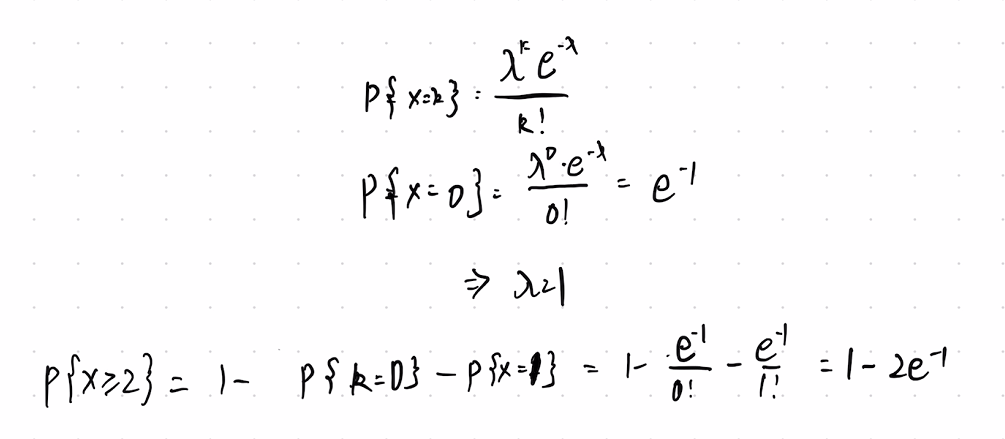 P{x=k} = \frac{λ^k e^{-λ}}{k!}
P{x=0} = \frac{λ^0 · e^{-λ}}{0!} = e^{-1}
⇒ λ=1
P{x≥2} = 1 - P{k=0} - P{x=1} = 1 - \frac{e^{-1}}{0!} - \frac{e^{-1}}{1!} = 1 - 2e^{-1}